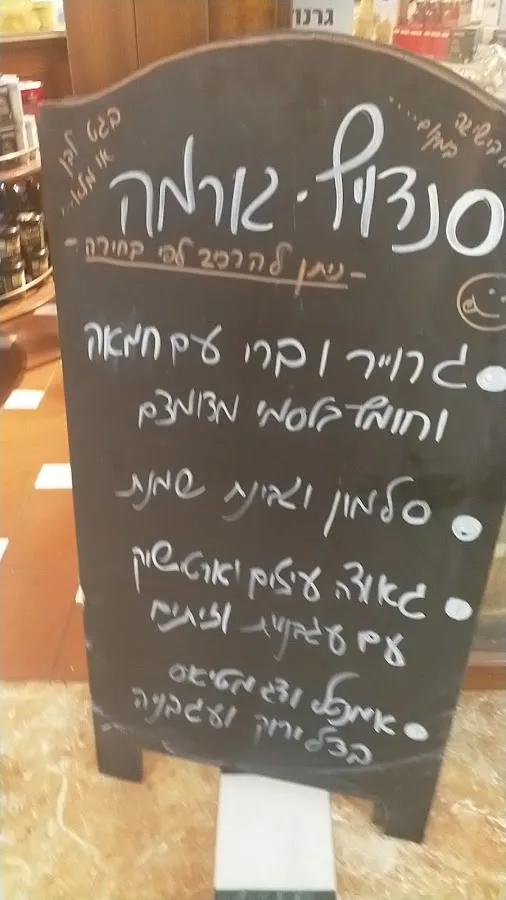 גרנו
בגט לבן
או מלא...
בישיבה
במקום.....
סנדויץ'-גורמה
-ניתן להרכב לפי בחירה-
גרוייר וברי עם חמאה
וחומץ בלסמי מצומצם
סלמון וגבינת שמנת
גאודה עיזים וארטישוק
עם עגבניות וזיתים
אמנטל ודג מטיאס
בצל ירוק ועגבניה